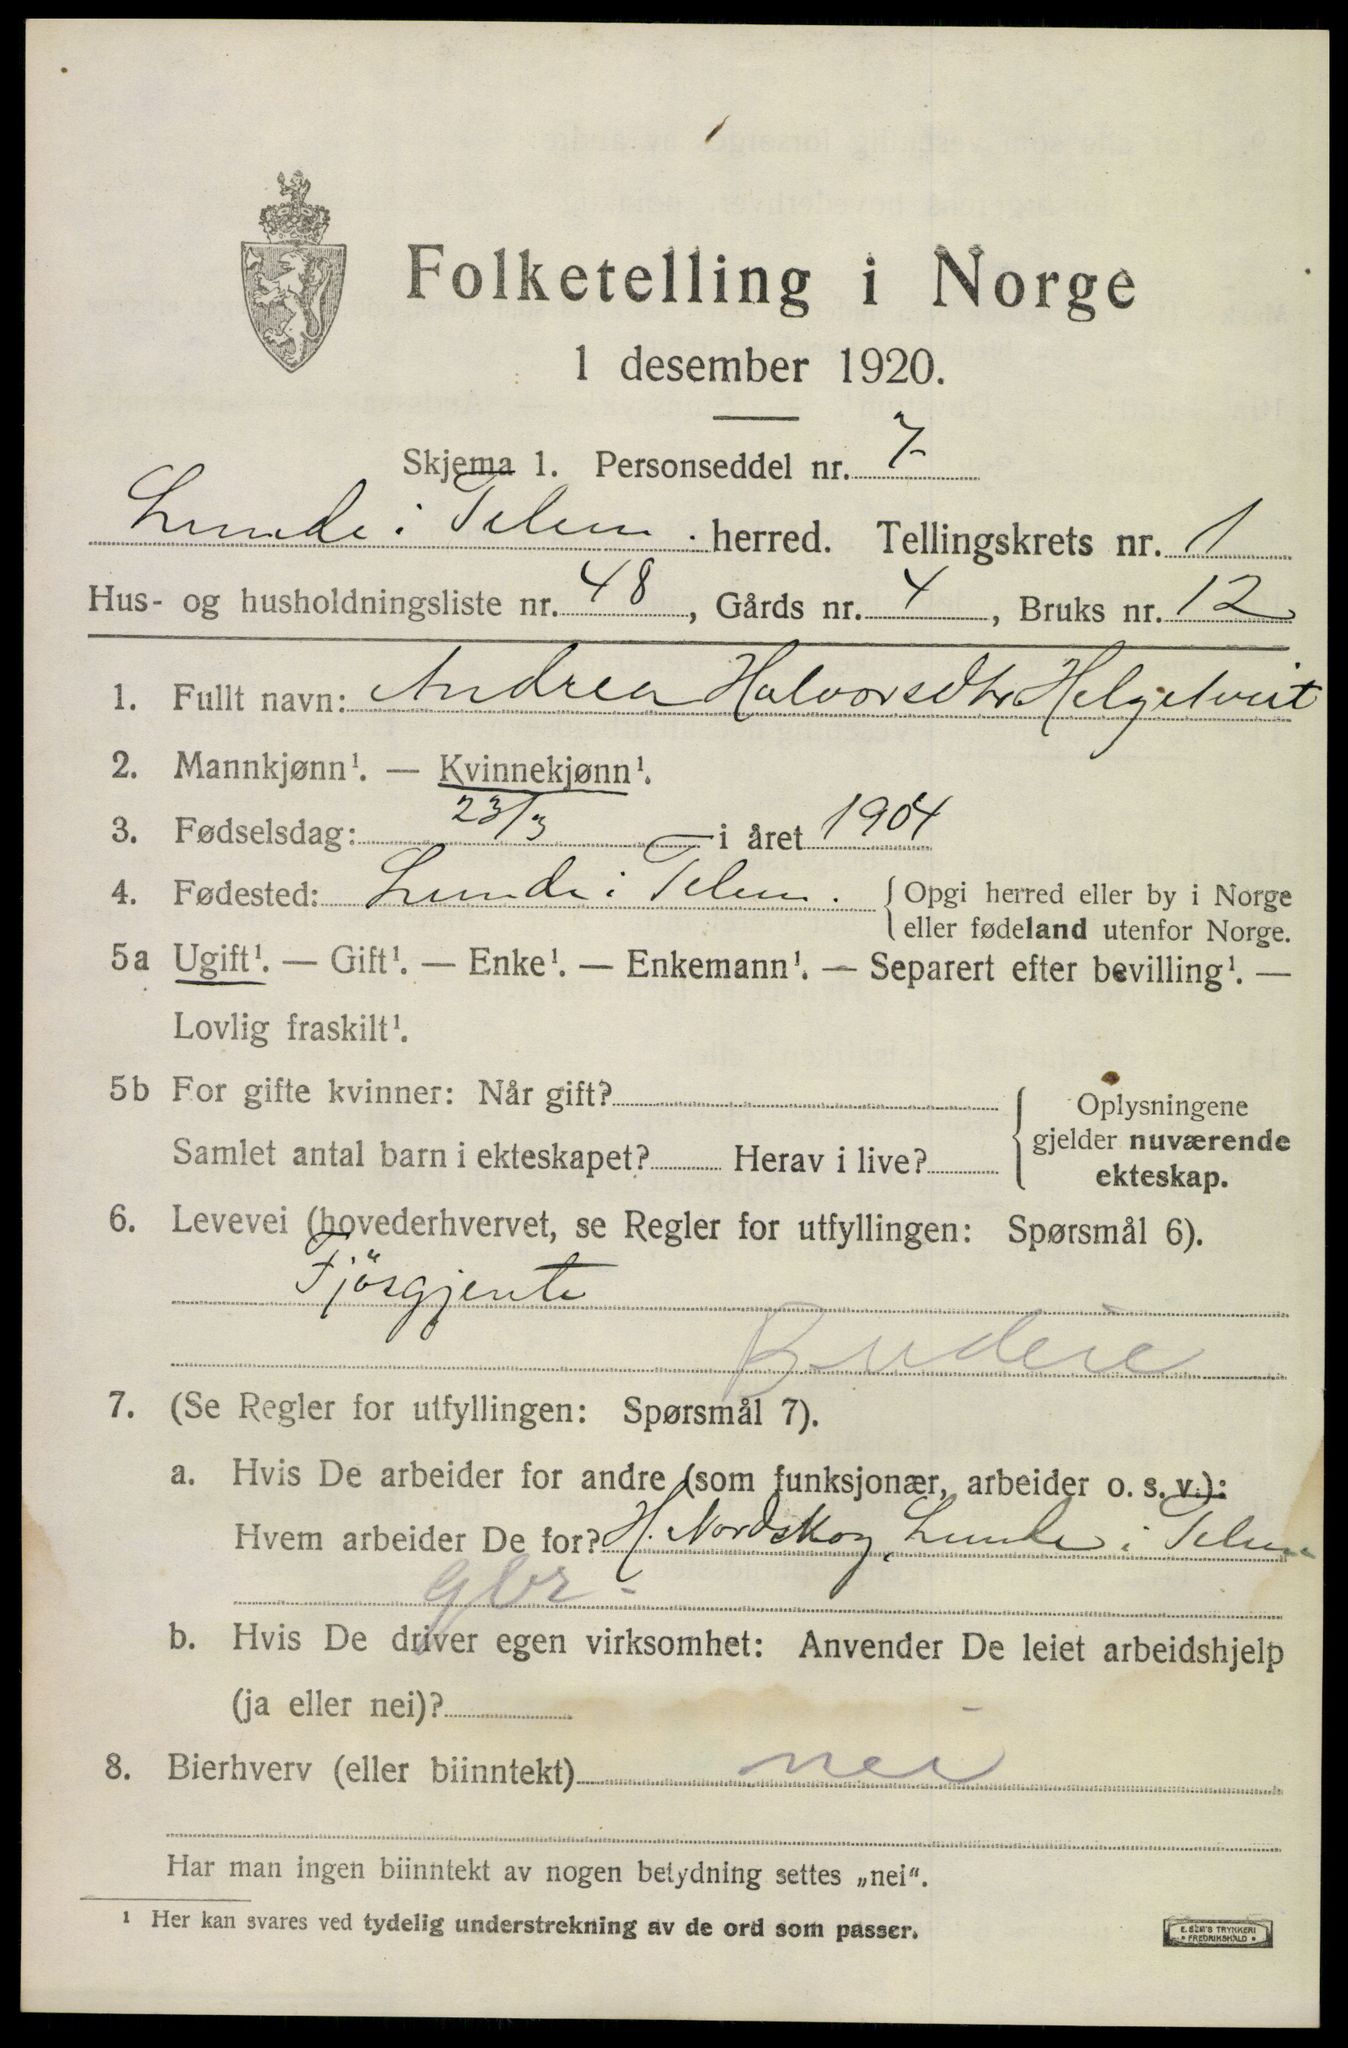 Folketelling i Norge
1 desember 1920.
Skjema 1. Personseddel nr. 7
Lunde i Telem. herred. Tellingskrets nr. 1
Hus- og husholdningsliste nr. 48, Gårds nr. 4, Bruks nr. 12
1. Fullt navn: Andrea Halvorsdtr. Helgetveit
2. Mannkjønn¹. — Kvinnekjønn¹.
3. Fødselsdag: 23/3 i året 1904
4. Fødested: Lunde i Telem. { Opgi herred eller by i Norge
eller fødeland utenfor Norge.
5a Ugift¹. — Gift¹. — Enke¹. — Enkemann¹. — Separert efter bevilling¹. —
Lovlig fraskilt¹.
5b For gifte kvinner: Når gift?
Samlet antal barn i ekteskapet? Herav i live?
Oplysningene
gjelder nuværende
ekteskap.
6. Levevei (hovederhvervet, se Regler for utfyllingen: Spørsmål 6).
Fjösgjente
Budeie
7. (Se Regler for utfyllingen: Spørsmål 7).
a. Hvis De arbeider for andre (som funksjonær, arbeider o. s. v.):
Hvem arbeider De for? H. Nordskog, Lunde i Telem
gbr -
b. Hvis De driver egen virksomhet: Anvender De leiet arbeidshjelp
(ja eller nei)?
8. Bierhverv (eller biinntekt) nei
Har man ingen biinntekt av nogen betydning settes „nei“.
¹ Her kan svares ved tydelig understrekning av de ord som passer.
E. SEM'S TRYKKERI
• FREDRIKSHALD •